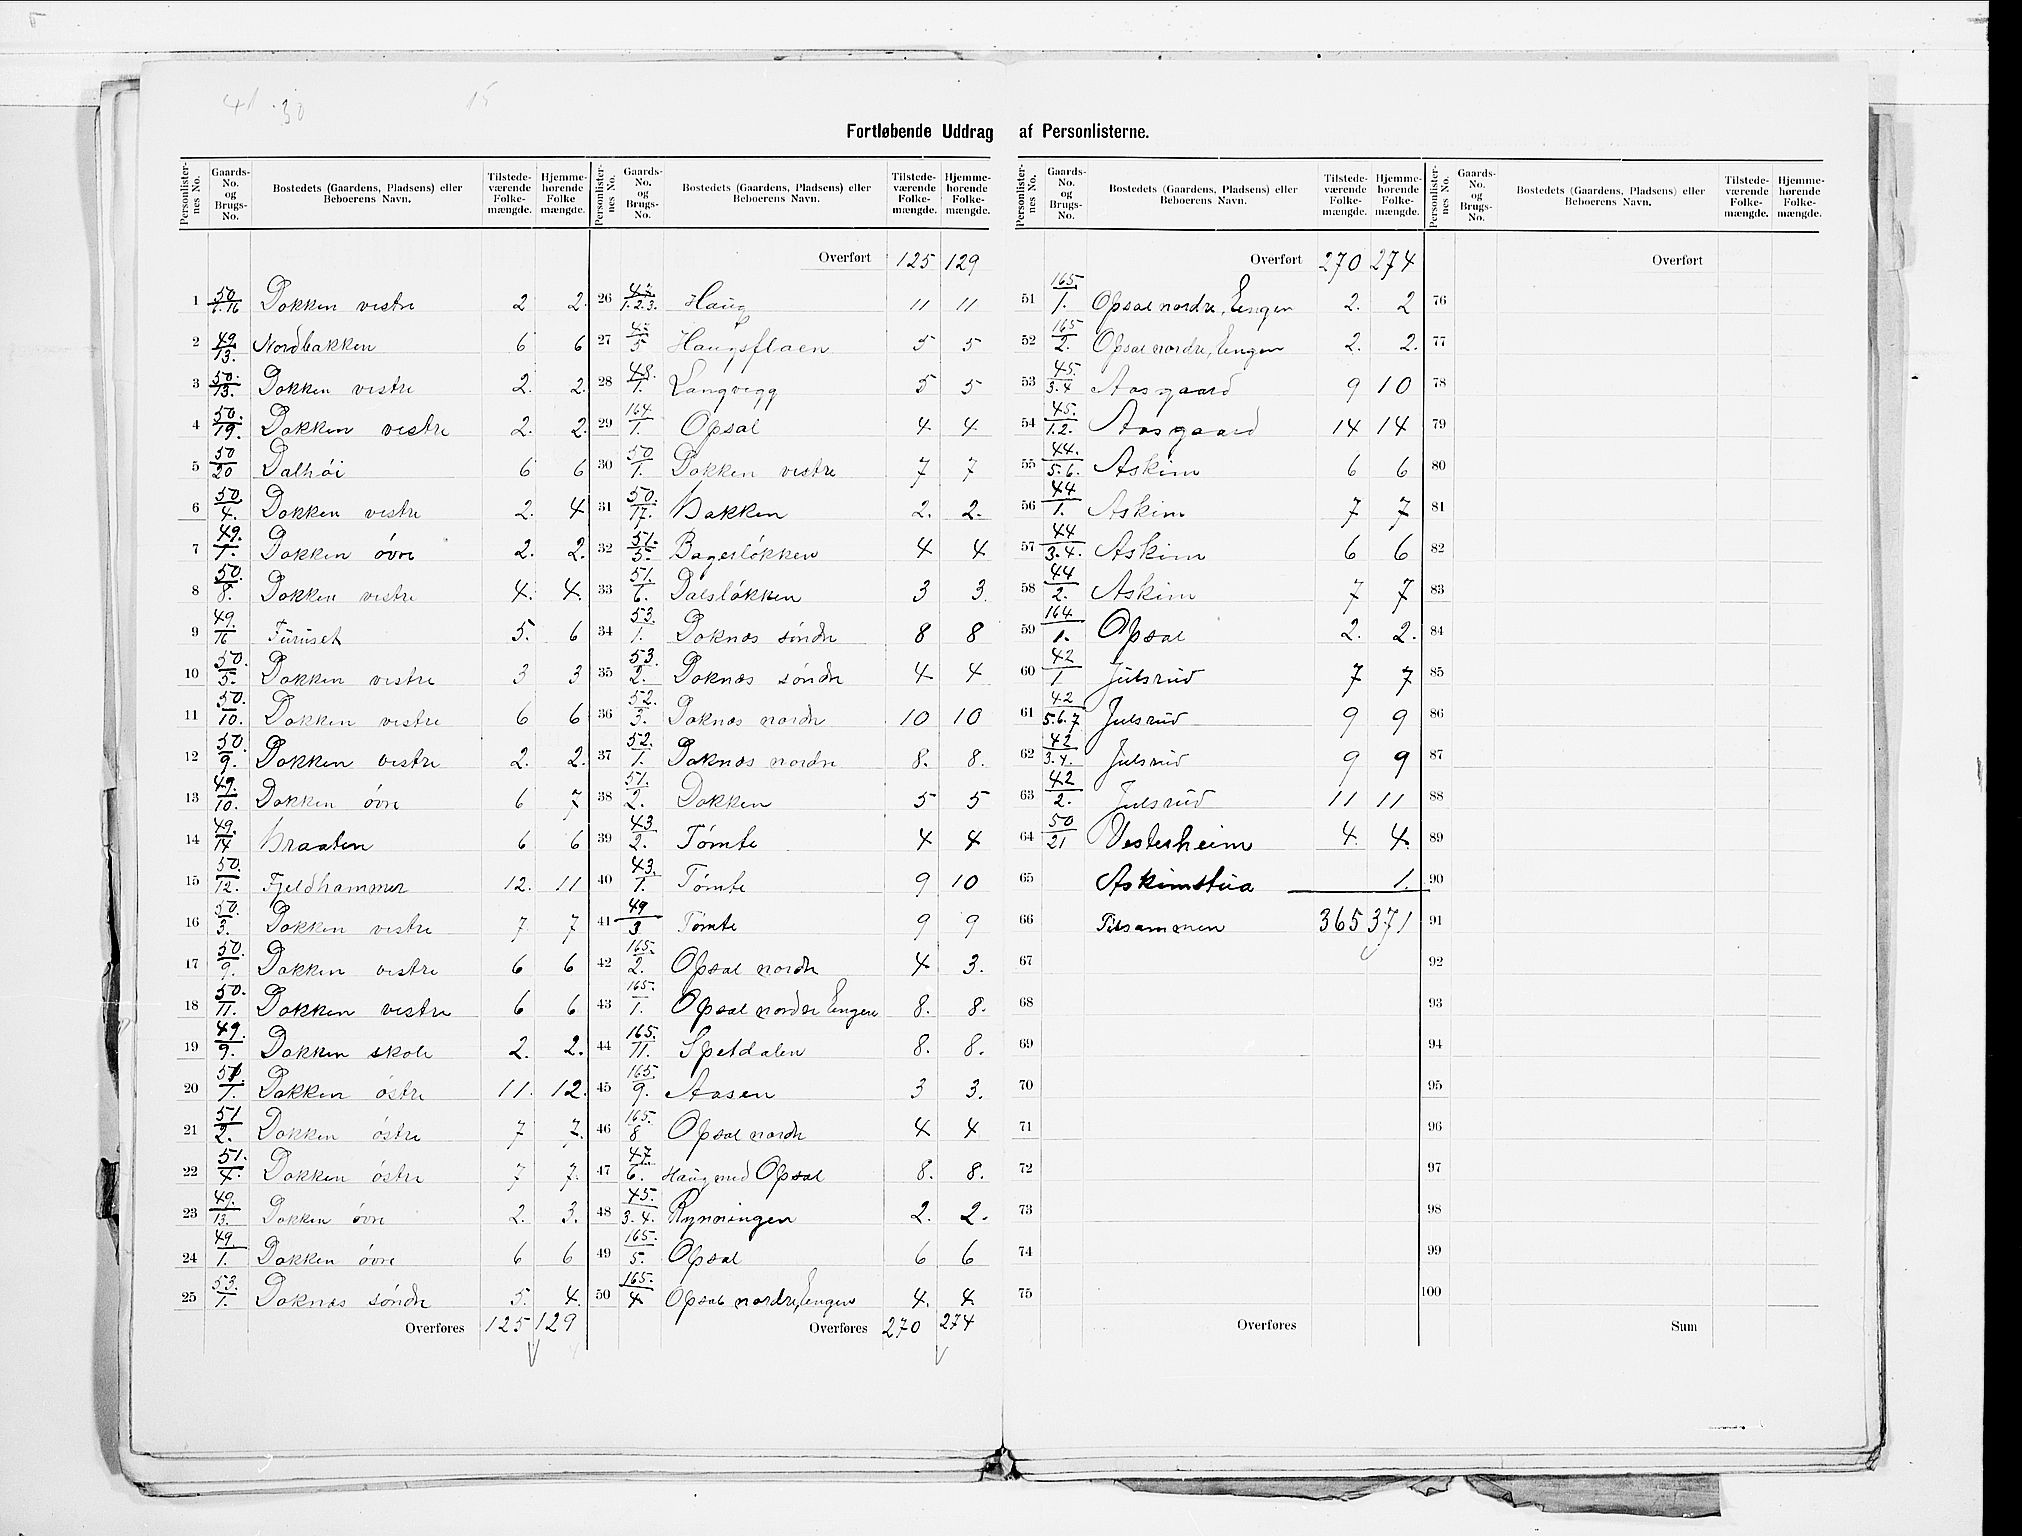 41 30 15
Fortløbende Uddrag af Personlisterne.
Personlisternes No. Gaards-No. og Brugs-No. Bostedets (Gaardens, Pladsens) eller Beboerens Navn. Tilstedeværende Folkemængde. Hjemmehørende Folkemængde.
1 50/1.16 Dokken vestre 2 2.
2 49/13. Nordbakken 6 6
3 50./13. Dokken vestre 2. 2.
4 50./19. Dokken vestre 2. 2.
5 50/20 Dalhöi 6 6
6 50/4. Dokken vestre 2. 4
7 49./1. Dokken övre 2. 2.
8 50./8. Dokken vestre 4. 4.
9 49./16 Furuset 5. 6
10 50./5. Dokken vestre 3 3
11 50./10. Dokken vestre 6 6
12 50./9. Dokken vestre 2. 2.
13 49./10. Dokken övre 6 7
14 49./14 Braaten 6 6
15 50./12. Fjeldhammer 12. 11
16 50./3. Dokken vestre 7 7
17 50./9. Dokken vestre 6 6
18 50./11. Dokken vestre 6 6
19 49./9. Dokken skole 2. 2.
20 51/1. Dokken östre 11. 12.
21 51/2. Dokken östre 7 7.
22 51./4. Dokken östre 7 7.
23 49./13. Dokken övre 2. 3.
24 49./1. Dokken övre 6 6
25 53./1. Doknæs söndre 5. 4.
Overføres 125 129
Overført 125 129
26 47/1.2.3. Haug 11 11
27 45/5 Haugsflaen 5 5
28 48./1. Langvegg 5 5
29 164./1. Opsal 4 4
30 50/1. Dokken vestre 7 7
31 50./17. Bakken 2. 2.
32 51./5. Bagerlökken 4 4
33 51./6. Dalslökken 3 3.
34 53./1. Doknæs söndre 8 8
35 53./2. Doknæs söndre 4 4
36 52./3. Doknæs nordre 10 10
37 52./1. Doknæs nordre 8. 8.
38 51./2. Dokken 5 5
39 43/2. Tömte 4 4
40 43./1. Tömte 9 10
41 49/3 Tömte 9 9
42 165./2. Opsal nordre 4 3.
43 165./1. Opsal nordre Engen 8. 8.
44 165./11. Speldalen 8. 8.
45 165./9. Aasen 3 3.
46 165./8 Opsal nordre 4 4
47 47./6. Haug med Opsal 8. 8.
48 45./3.4. Rynningen 2. 2.
49 165./5. Opsal 6 6
50 165./4 Opsal nordre, Engen 4. 4.
Overføres 270 274
Overført 270 274
51 165./1. Opsal nordre, Engen 2. 2
52 165/2. Opsal nordre, Engen 2. 2.
53 45./3.4 Aasgaard 9 10
54 45./1.2. Aasgaard 14 14
55 44./5.6. Askim 6 6
56 44/1. Askim 7 7
57 44/3.4. Askim 6 6
58 44/2. Askim 7 7
59 164/1. Opsal 2. 2.
60 42/1 Julsrud 7 7
61 42/5.6.7 Julsrud 9 9
62 42/3.4. Julsrud 9 9
63 42/2. Julsrud 11 11
64 50/21 Vesterheim 4. 4.
65 Askimstua 1.
66 Tilsammen 365 371
67
68
69
70
71
72
73
74
75
Overføres
Overført
76
77
78
79
80
81
82
83
84
85
86
87
88
89
90
91
92
93
94
95
96
97
98
99
100
Sum